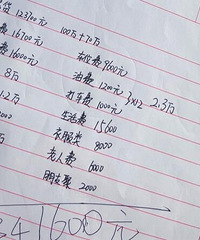 货 123700元
费 16700元
费 16000元
8万
1.2万
100万+70万
车位费 9600元
油费 1200元
打车费 1000元
}×12 2.3万
生活费 15600
衣服类 8000
老人费 6000
朋友聚 2000
341600元